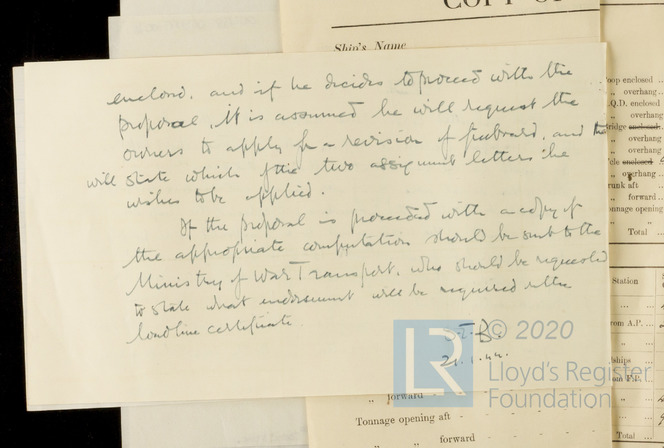 COPY OF
Ship's Name
enclosed. and if he decides to proceed with the
proposal, it is assumed he will request the
owners to apply for a revision of freeboard, and the
will state which of the two assignment letters he
wishes to be applied.
If the proposal is proceeded with a copy of
the appropriate computation should be sent to the
Ministry of War Transport, who should be requested
to state what endorsement will be required on the
loadline certificate.
21.1.44.
LR
© 2020
Lloyd's Register
Foundation
oop enclosed ..
„ overhang ..
.Q.D. enclosed
„ overhang
ridge enclosed
„ overhang
„ overhang
cle enclosed
„ overhang
runk aft
„ forward ..
onnage opening
„ Total ...
Station
rom A.P. ...
ships
„ forward
Tonnage opening aft -
„ forward
Total ...